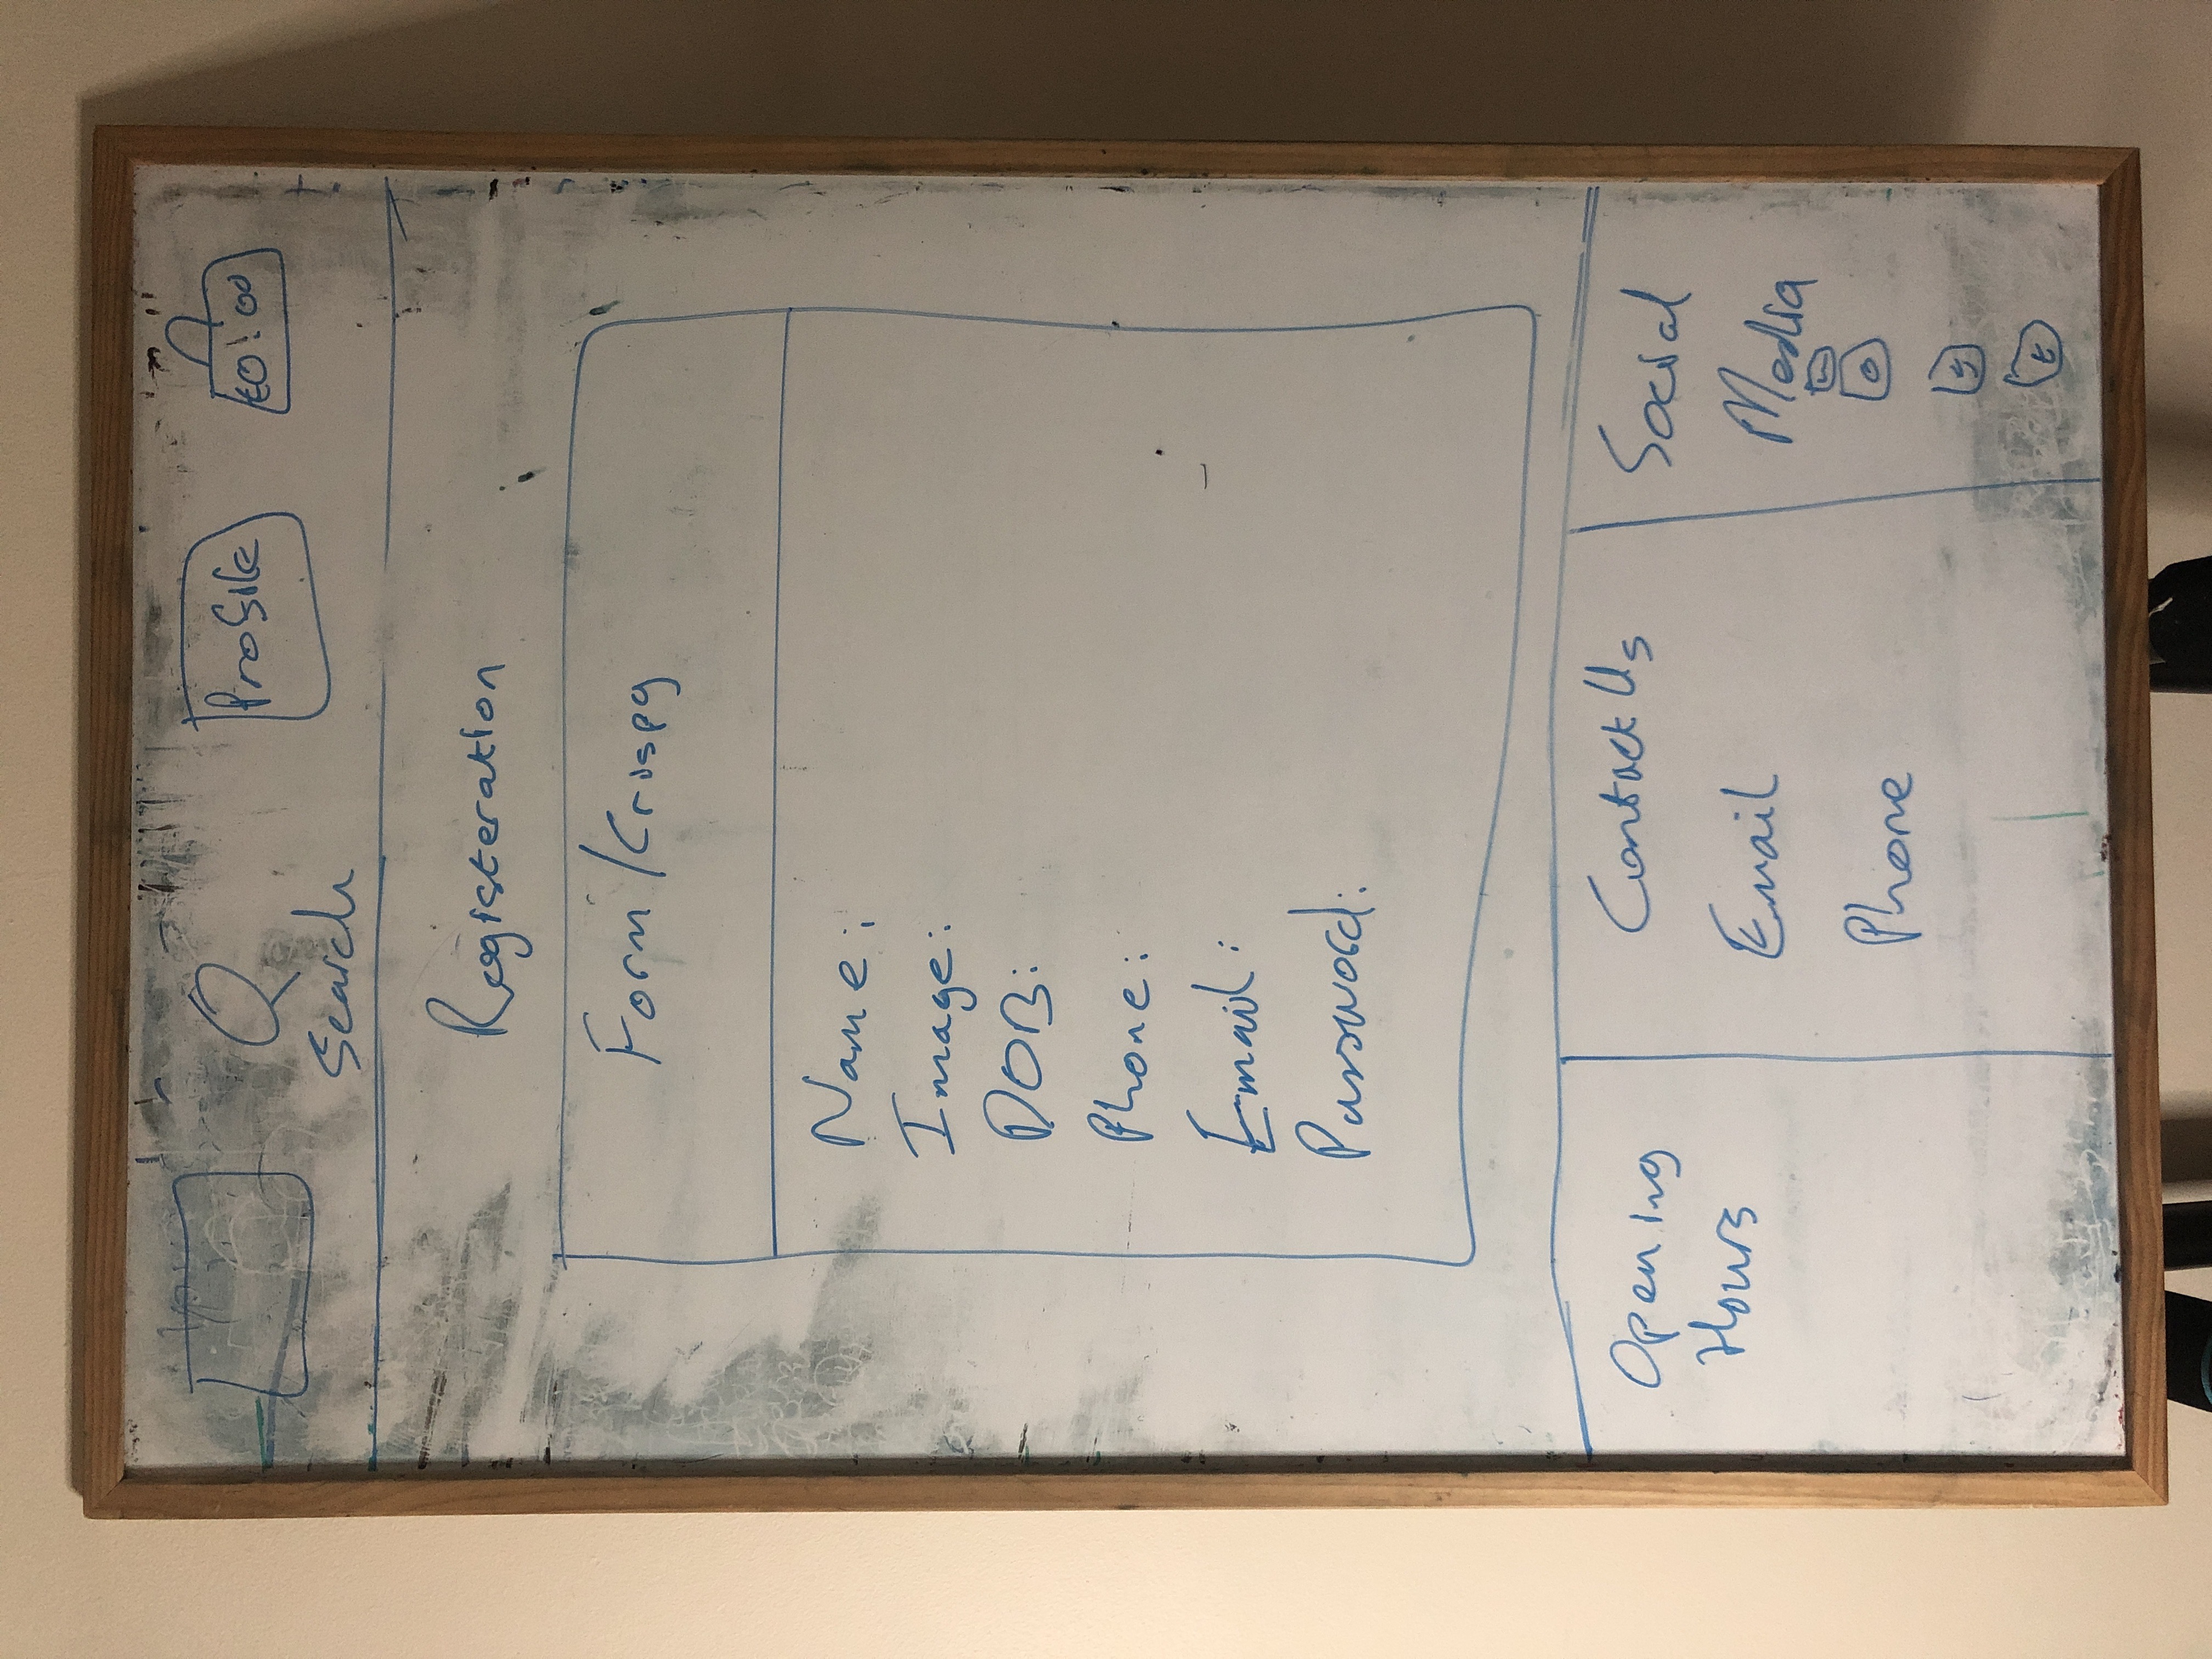 Profile
€0.00
Search
Registeration
Form / Crispy
Name:
Image:
DOB:
Phone:
Email:
Password:
Opening
Hours
Contact Us
Email
Phone
Social
Media
t